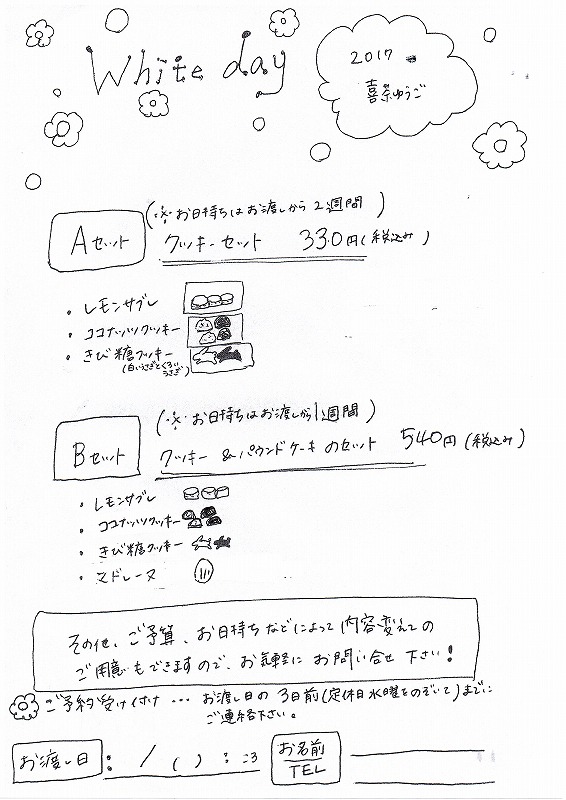 White day
2017
喜茶ゆうご
(※お日持ちはお渡しから2週間)
Aセット
クッキーセット 330円(税込み)
・レモンサブレ
・ココナッツクッキー
・きび糖クッキー
(白いうさぎとくろいうさぎ)
(※お日持ちはお渡しから1週間)
Bセット
クッキー&パウンドケーキのセット 540円(税込み)
・レモンサブレ
・ココナッツクッキー
・きび糖クッキー
・マドレーヌ
その他、ご予算、お日持ちなどによって内容変えての
ご用意もできますので、お気軽にお問い合せ下さい!
ご予約受け付け… お渡し日の3日前(定休日水曜をのぞいて)までに
ご連絡下さい。
お渡し日: / ( ) : ころ
お名前
TEL